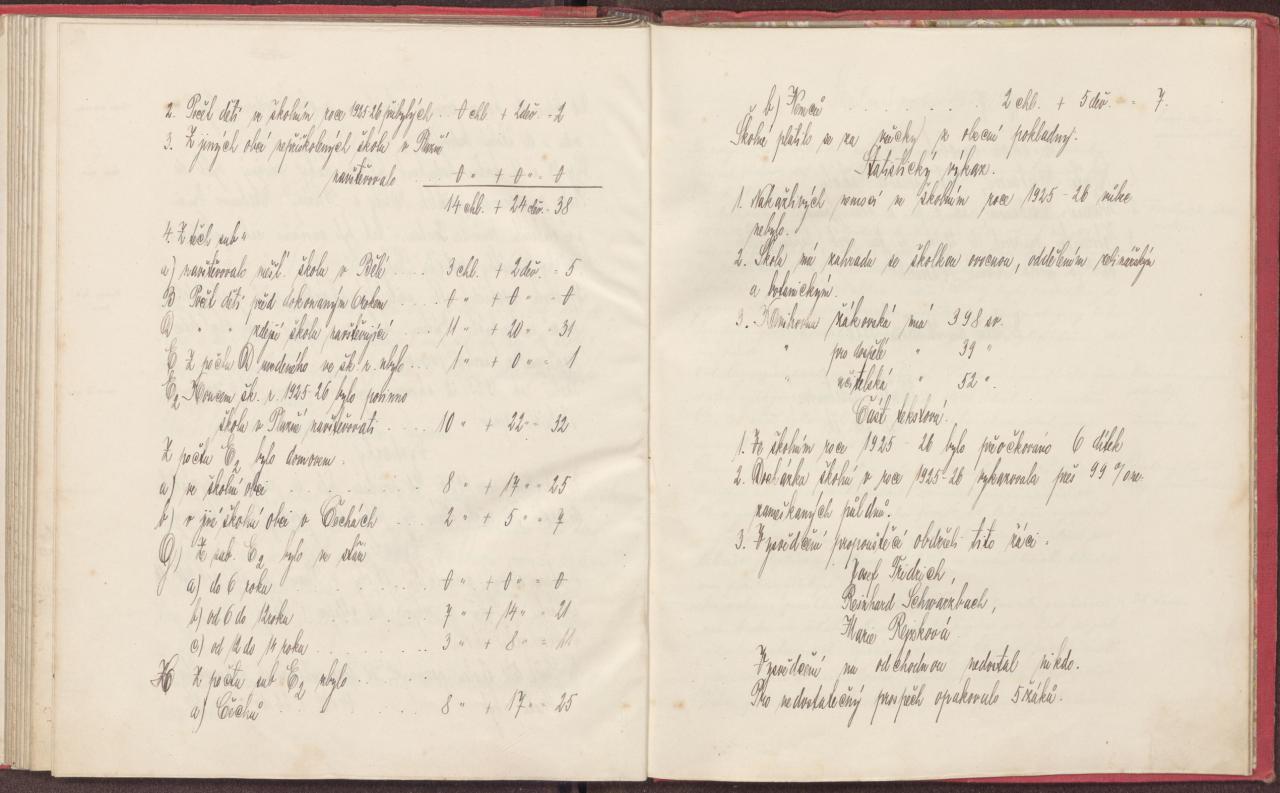 2. Počet dětí ve školním roce 1925-26 přibylých .. 0 chl. + 2 děv. = 2
3. Z jiných obcí nepřiškolených školu v
navštěvovalo .. 0 " + 0 " = 0
14 chl. + 24 děv. = 38
4. Z těch sub "
a) navštěvovalo měšť. školu v Bělé .... 3 chl. + 2 děv. = 5
B Počet dětí před dokonaným 6 rokem .... 0 " + 0 " = 0
D " " zdejší školu navštěvující .... 11 " + 20 " = 31
E Z počtu D uvedeného ve šk. r. ubylo ... 1 " + 0 " = 1
E2 Koncem šk. r. 1925-26 bylo povinno
školu v navštěvovati ..... 10 " + 22 " = 32
Z počtu E2 bylo domovem.
a) ve školní obci .......... 8 " + 17 " = 25
b) v jiné školní obci v Čechách .... 2 " + 5 " = 7
G) Z sub. E2 bylo ve stáří
a) do 6 roku .......... 0 " + 0 " = 0
b) od 6 do 12 roku .......... 7 " + 14 " = 21
c) od 12 do 14 roku .......... 3 " + 8 " = 11
H Z počtu sub E2 bylo .....
a) Čechů .......... 8 " + 17 " = 25
b) Němců .......... 2 chl. + 5 děv. = 7.
Školné platilo se za všecky z obecní pokladny.
Statistický výkaz.
1. Nakažlivých nemocí ve školním roce 1925-26 vůbec
nebylo.
2. Škola má zahradu se školkou ovocnou, oddělením zelinářským
a botanickým.
3. Knihovna žákovská má 398 sv.
" pro dospělé " 39 "
" učitelská " 52 "
Část textová.
1. Ve školním roce 1925-26 bylo přeočkováno 6 dítek
2. Docházka školní v roce 1925-26 vykazovala přes 99% ne-
zameškaných půldnů.
3. Vysvědčení propouštěcí obdrželi tito žáci:
Josef Fridrich,
Reinhard Schwarzbach,
Marie
Vysvědčení na odchodnou nedostal nikdo.
Pro nedostatečný prospěch opakovalo 5 žáků.